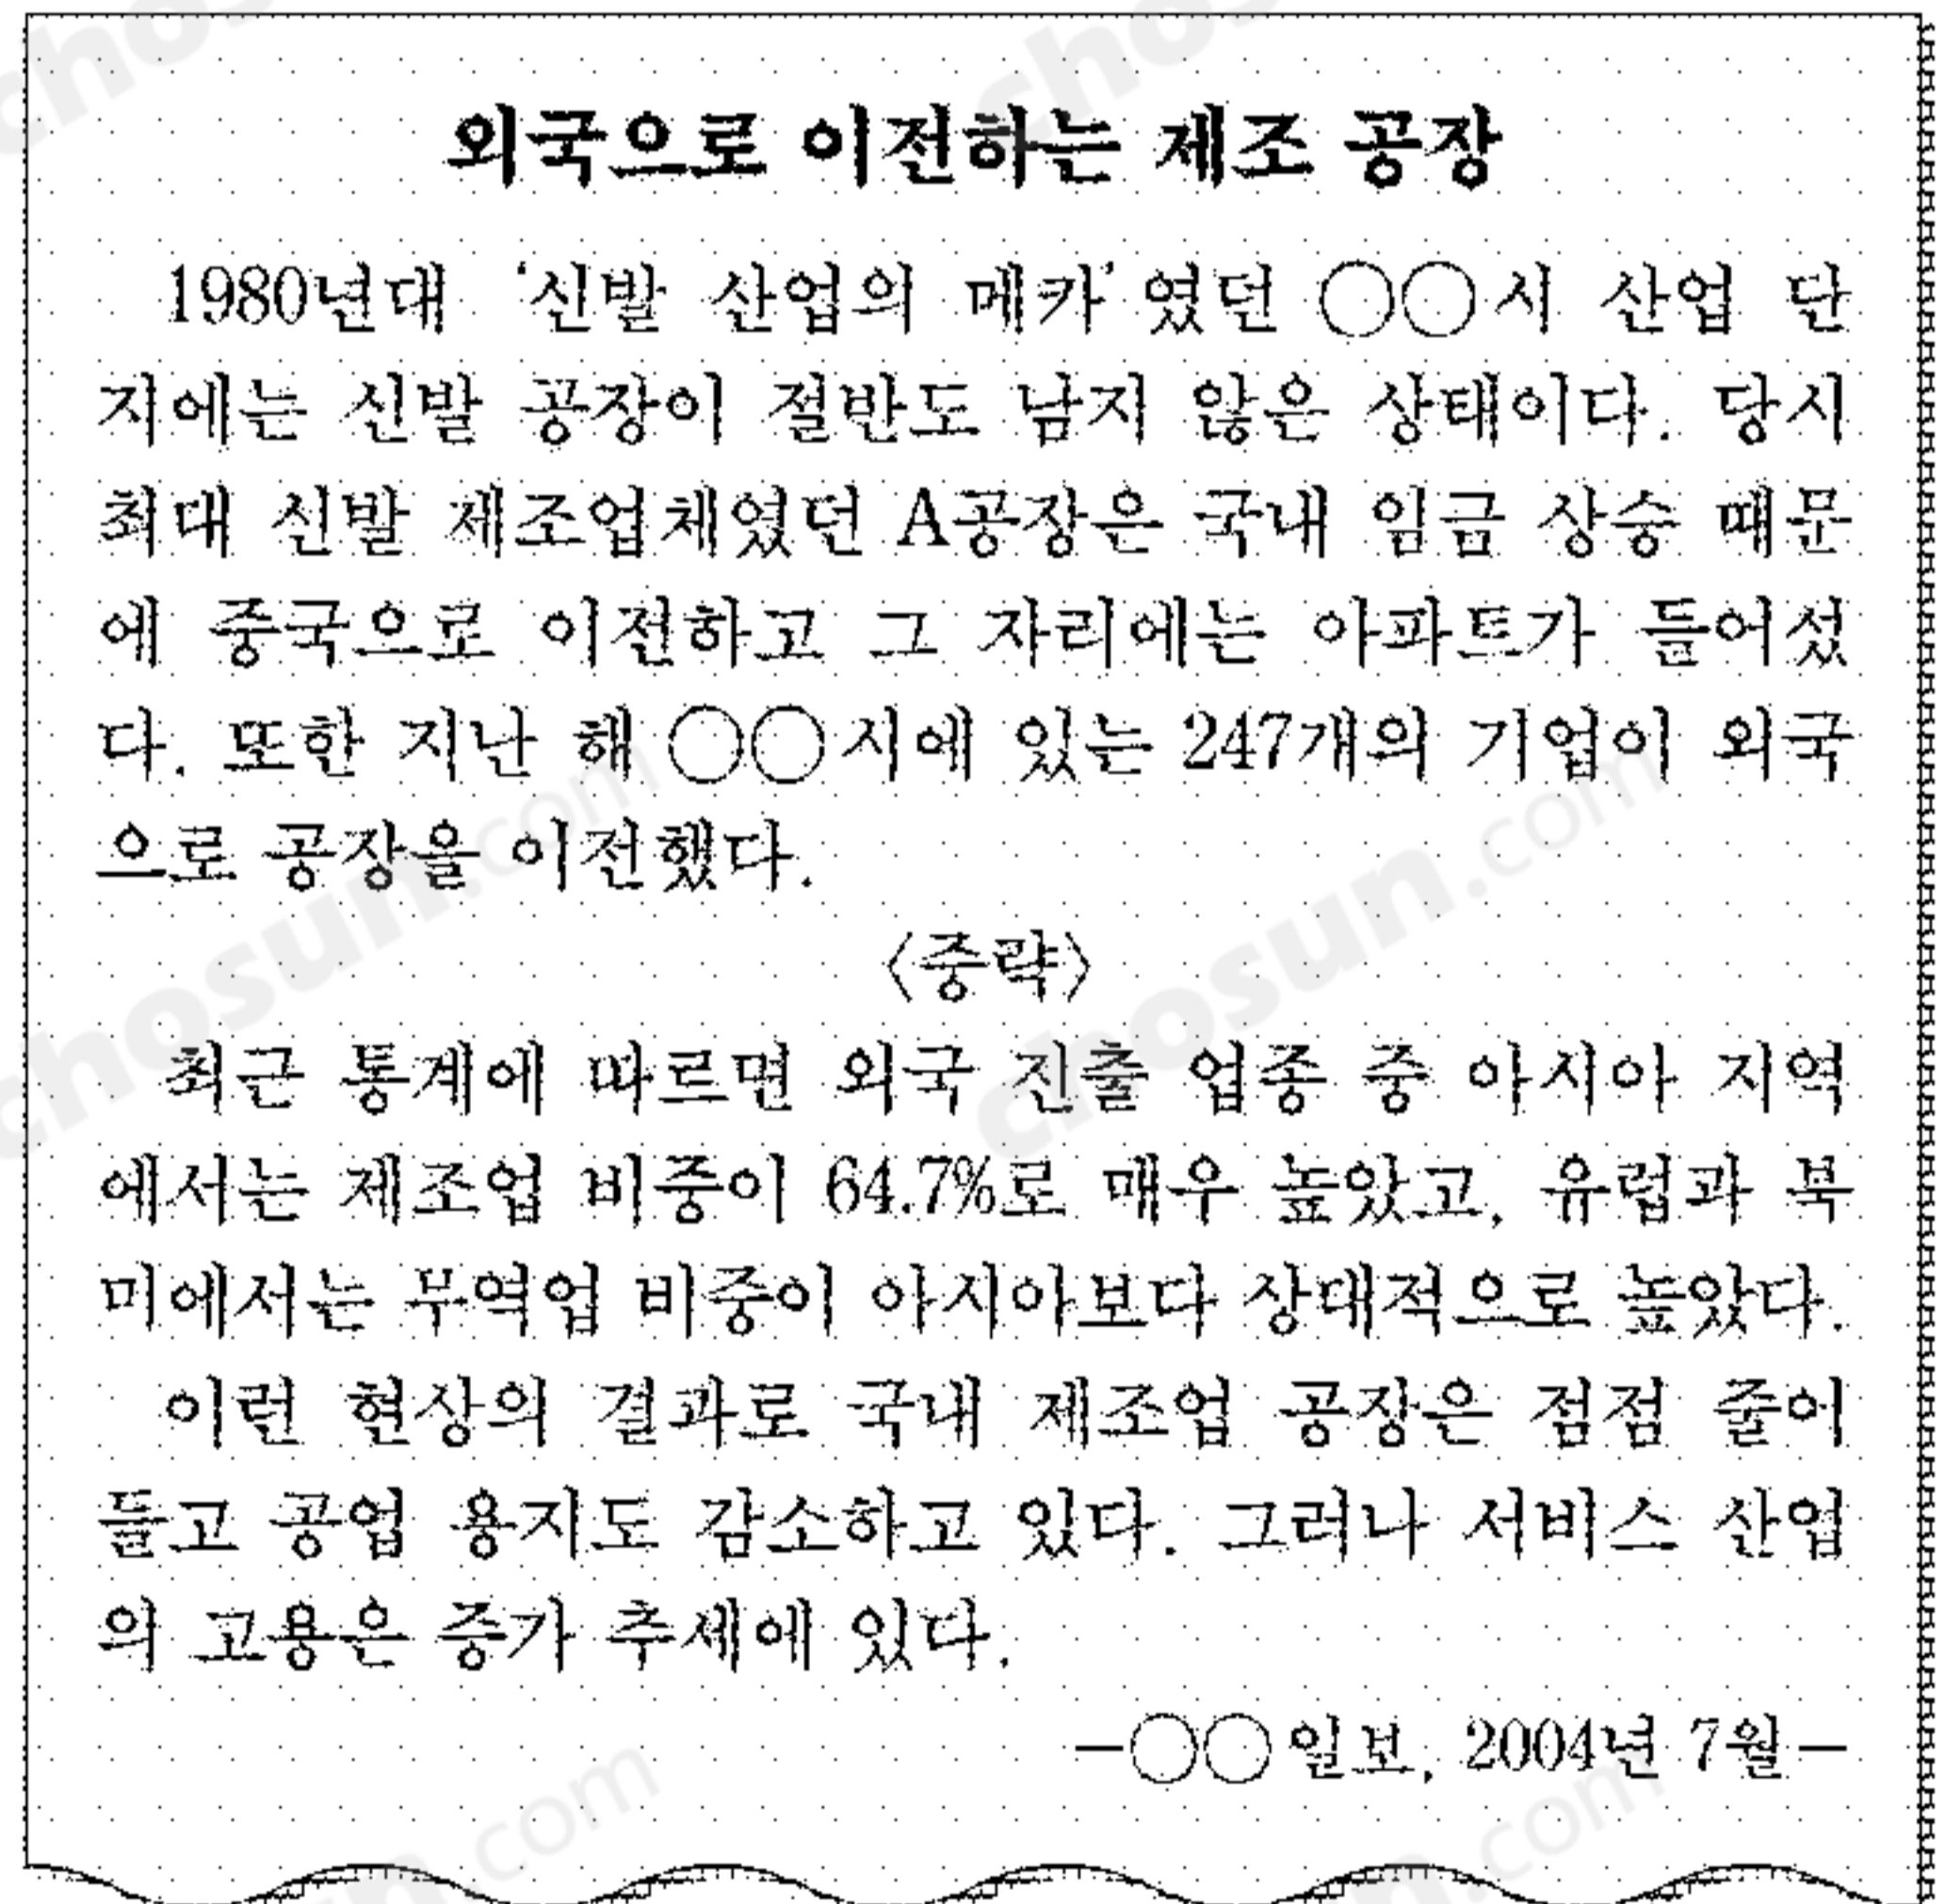 외국으로 이전하는 제조 공장
1980년대 '신발 산업의 메카'였던 ○○시 산업 단
지에는 신발 공장이 절반도 남지 않은 상태이다. 당시
최대 신발 제조업체였던 A공장은 국내 임금 상승 때문
에 중국으로 이전하고 그 자리에는 아파트가 들어섰
다. 또한 지난 해 ○○시에 있는 247개의 기업이 외국
으로 공장을 이전했다.
〈중략〉
최근 통계에 따르면 외국 진출 업종 중 아시아 지역
에서는 제조업 비중이 64.7%로 매우 높았고, 유럽과 북
미에서는 무역업 비중이 아시아보다 상대적으로 높았다.
이런 현상의 결과로 국내 제조업 공장은 점점 줄어
들고 공업 용지도 감소하고 있다. 그러나 서비스 산업
의 고용은 증가 추세에 있다.
-○○일보, 2004년 7월-
chosun.com
chosun.com